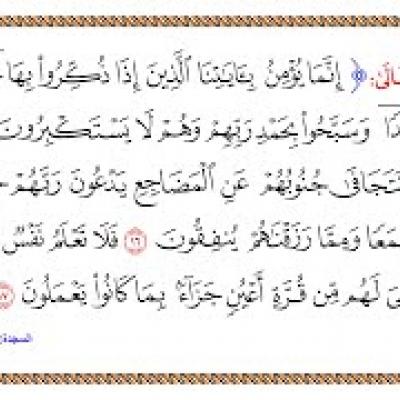 ﴿ إِنَّمَا يُؤْمِنُ بِـَٔايَـٰتِنَا ٱلَّذِينَ إِذَا ذُكِّرُوا۟ بِهَا
وَسَبَّحُوا۟ بِحَمْدِ رَبِّهِمْ وَهُمْ لَا يَسْتَكْبِرُونَ
تَتَجَافَىٰ جُنُوبُهُمْ عَنِ ٱلْمَضَاجِعِ يَدْعُونَ رَبَّهُمْ
وَمِمَّا رَزَقْنَـٰهُمْ يُنفِقُونَ ١٦ فَلَا تَعْلَمُ نَفْسٌ
لَهُم مِّن قُرَّةِ أَعْيُنٍ جَزَآءًۢ بِمَا كَانُوا۟ يَعْمَلُونَ
السجدة